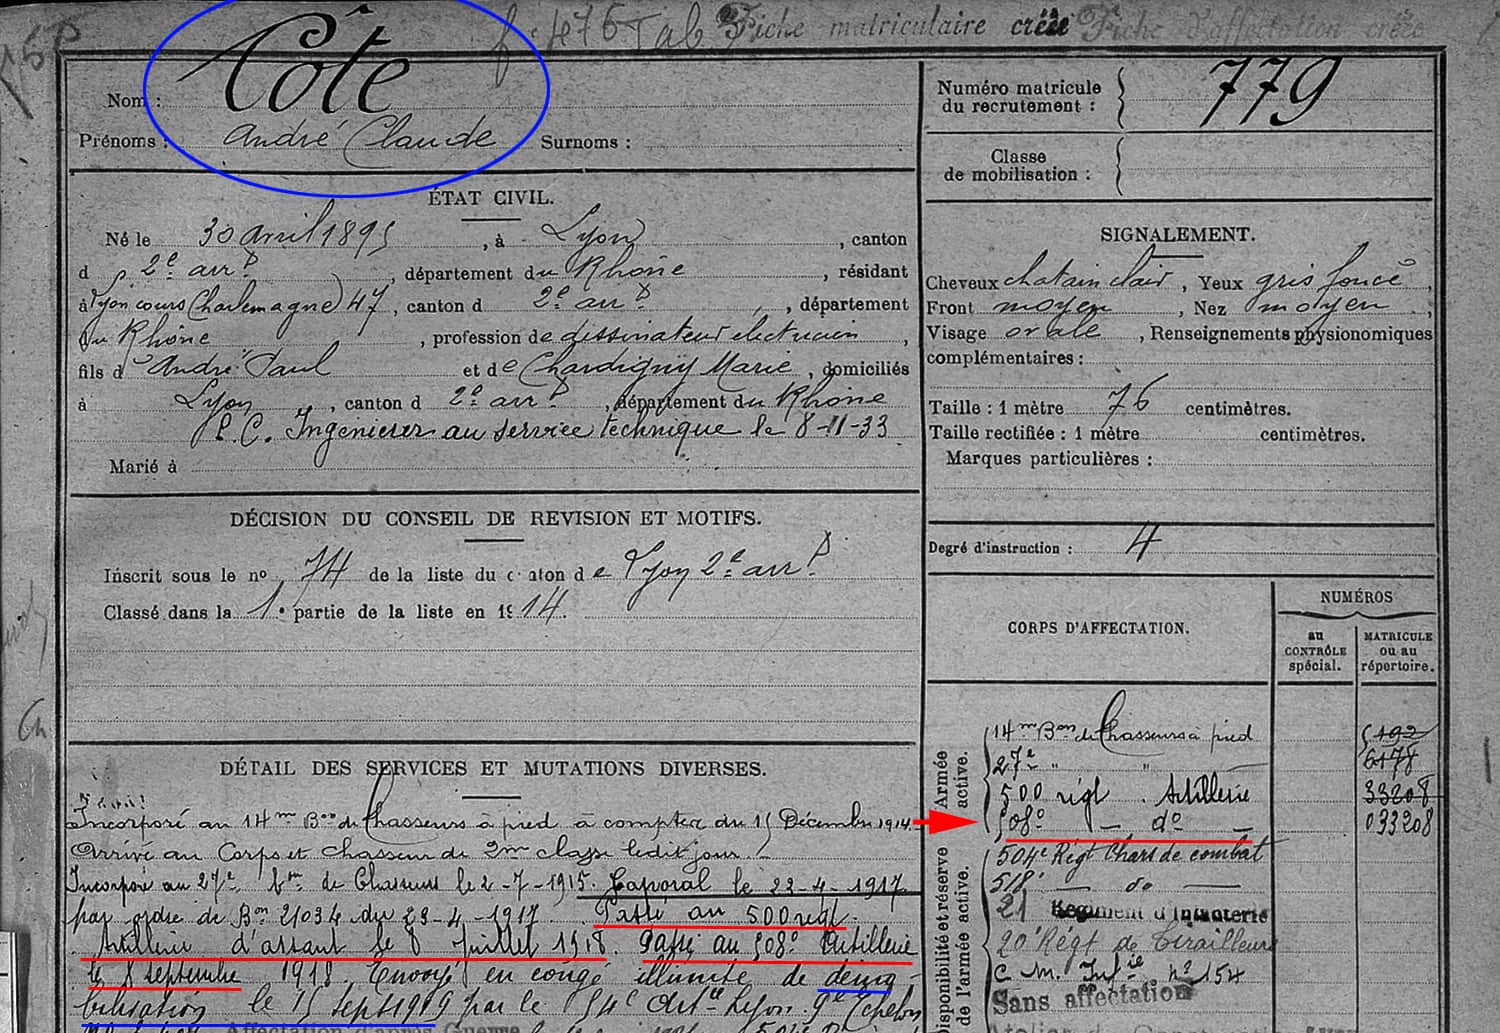 fo 476 Tab Fiche matriculaire créée Fiche d'affectation créée
Nom : Côte
Prénoms : André Claude Surnoms :
ÉTAT CIVIL.
Né le 30 avril 1895, à Lyon, canton
d 2e arrt, département du Rhône, résidant
à Lyon cours Charlemagne 47, canton d 2e arrt, département
du Rhône, profession de dessinateur electricien,
fils d André Paul et de Chardigny Marie, domiciliés
à Lyon, canton d 2e arrt, département du Rhône
P.C. Ingenieur au service technique le 8-11-33
Marié à
DÉCISION DU CONSEIL DE REVISION ET MOTIFS.
Inscrit sous le no 74 de la liste du canton de Lyon 2e arrt
Classé dans la 1e partie de la liste en 1914.
DÉTAIL DES SERVICES ET MUTATIONS DIVERSES.
Incorporé au 14me Bon de Chasseurs à pied à compter du 15 Décembre 1914.
Arrivé au Corps et chasseur de 2me classe ledit jour.
Incorporé au 27e Bon de Chasseurs le 2-7-1915. Caporal le 23-4-1917
par ordre du Bon 21034 du 23-4-1917. Passé au 500 regt
Artillerie d'assaut le 8 Juillet 1918. Passé au 508e Artillerie
le 8 septembre 1918. Envoyé en congé illimité de démo-
bilisation le 15 Sept 1919 par le 54e Artie Lyon. 9e Echelon
Numéro matricule
du recrutement : 779
Classe
de mobilisation :
SIGNALEMENT.
Cheveux chatain clair, Yeux gris foncé,
Front moyen, Nez moyen,
Visage ovale, Renseignements physionomiques
complémentaires :
Taille : 1 mètre 76 centimètres.
Taille rectifiée : 1 mètre centimètres.
Marques particulières :
Degré d'instruction : 4
CORPS D'AFFECTATION.
NUMÉROS
au
CONTRÔLE
spécial.
MATRICULE
ou au
répertoire.
Armée
active.
14me Bon de Chasseurs à pied 5192
27e " " 6178
500 régt. Artillerie 33208
508e — do — 033208
Disponibilité et réserve
de l'armée active.
504e Régt Chars de combat
518e — do —
21 Régiment d'Infanterie
20e Régt de Tirailleurs
C. M. Infie no 154
Sans affectation